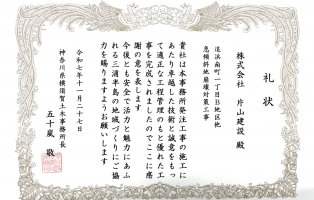 礼状
株式会社 片山建設 殿
追浜南町一丁目B地区他
急傾斜地崩壊対策工事
貴社は本事務所発注工事の施工に
あたり卓越した技術と誠意をもっ
て適正な工程管理のもと優れた工
事を完成されましたのでここに感
謝の意を表します
今後とも安全で活力と魅力にあふ
れる三浦半島の地域づくりにご協
力を賜りますようお願いします
令和七年十一月二十七日
神奈川県横須賀土木事務所長
五十嵐 敬